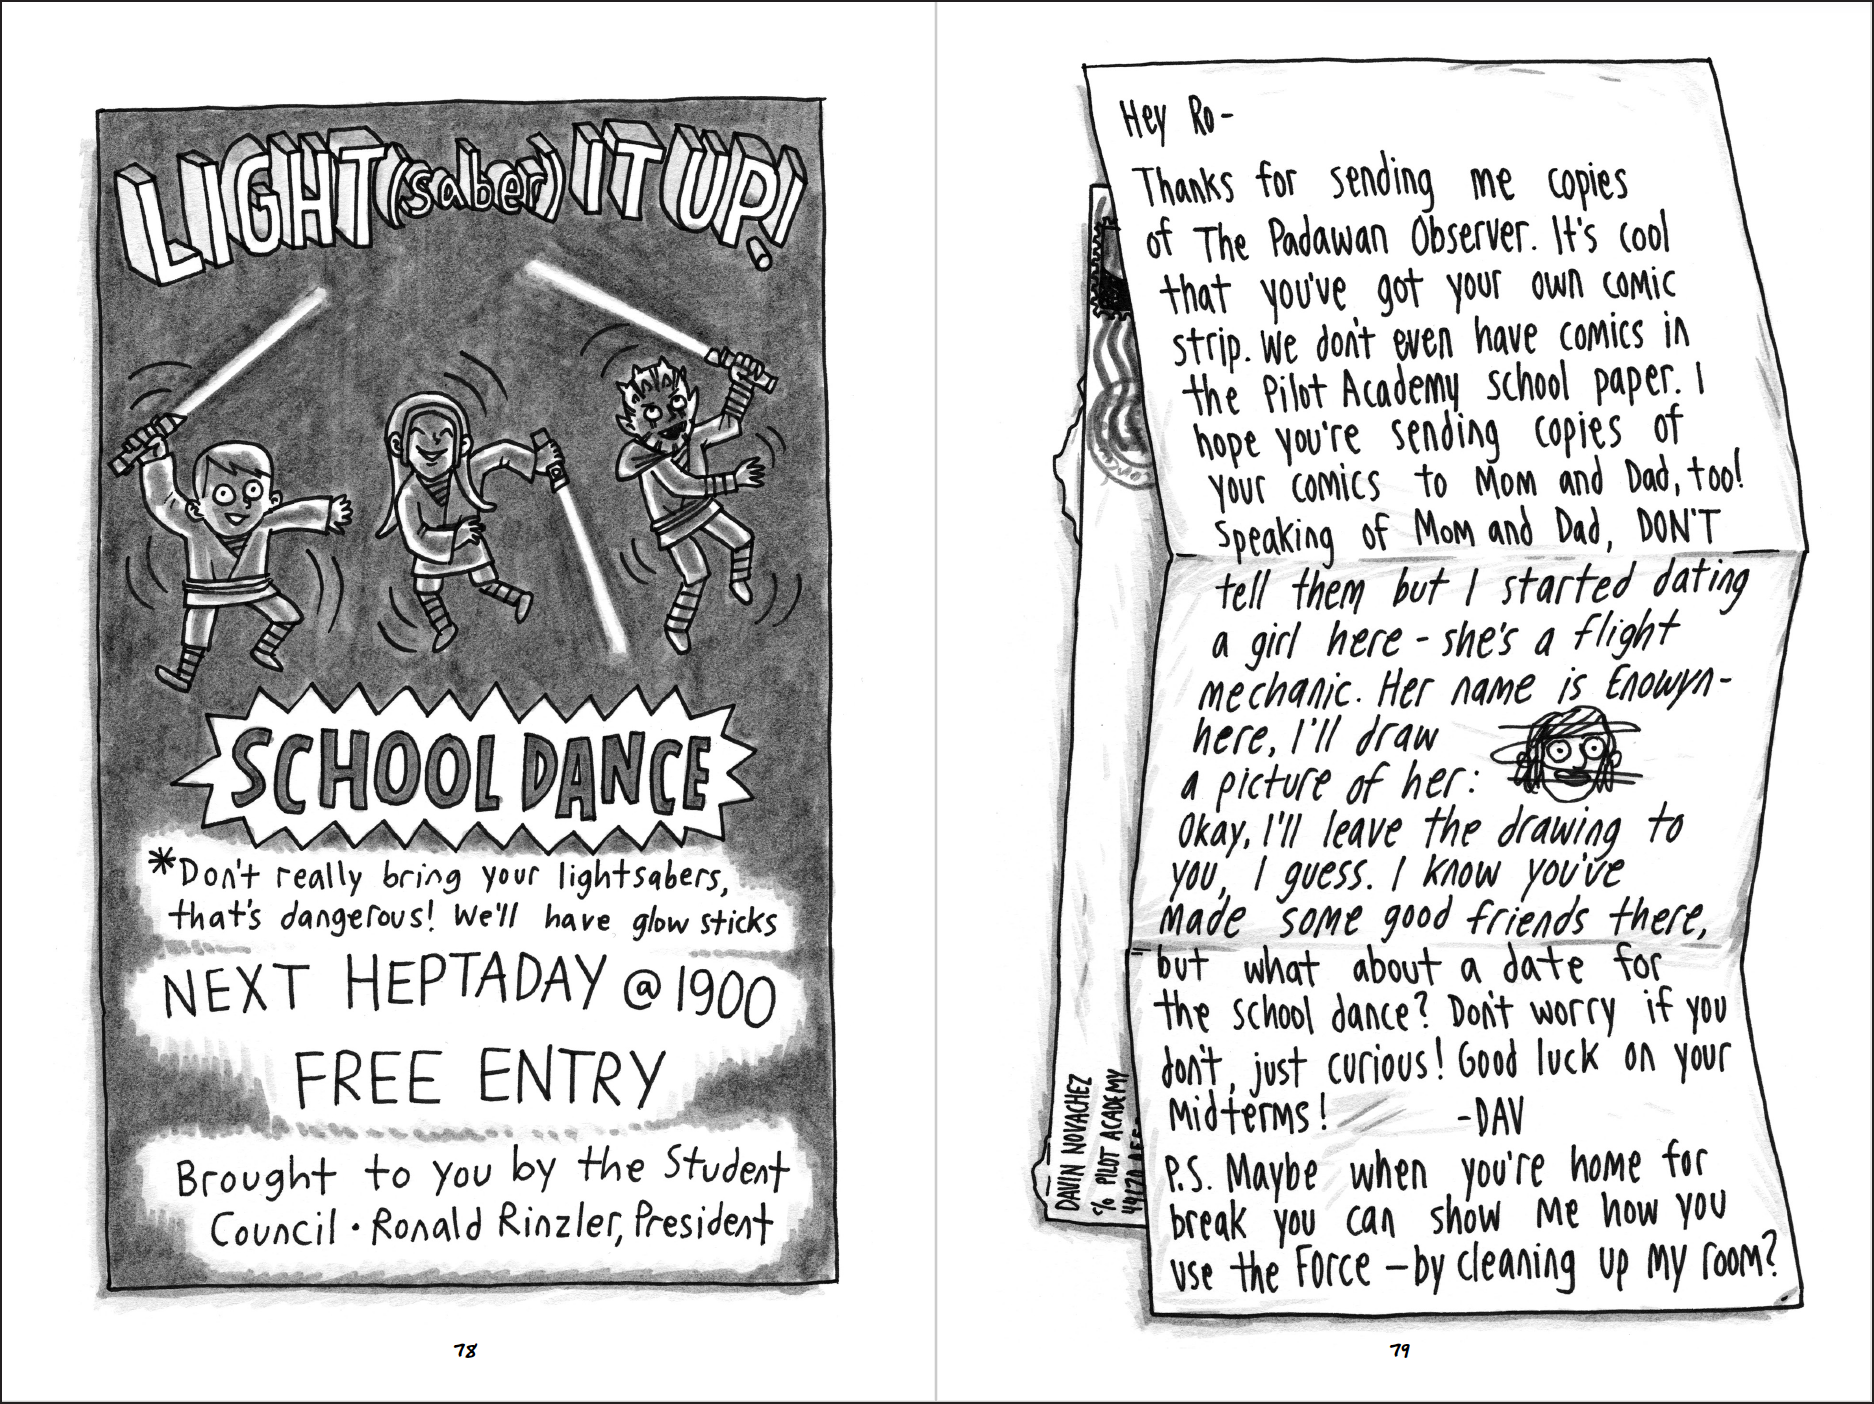 LIGHT (saber) IT UP!
SCHOOL DANCE
*Don't really bring your lightsabers,
that's dangerous! We'll have glow sticks
NEXT HEPTADAY @ 1900
FREE ENTRY
Brought to you by the Student
Council · Ronald Rinzler, President
78
Hey Ro-
Thanks for sending me copies
of The Padawan Observer. It's cool
that you've got your own comic
strip. We don't even have comics in
the Pilot Academy school paper. I
hope you're sending copies of
your comics to Mom and Dad, too!
Speaking of Mom and Dad, DON'T
tell them but I started dating
a girl here - she's a flight
mechanic. Her name is Enowyn-
here, I'll draw
a picture of her:
Okay, I'll leave the drawing to
you, I guess. I know you've
made some good friends there,
but what about a date for
the school dance? Don't worry if you
don't, just curious! Good luck on your
Midterms!
-DAV
P.S. Maybe when you're home for
break you can show me how you
use the Force - by cleaning up my room?
DAVIN NOVACHEZ
c/o PILOT ACADEMY
79